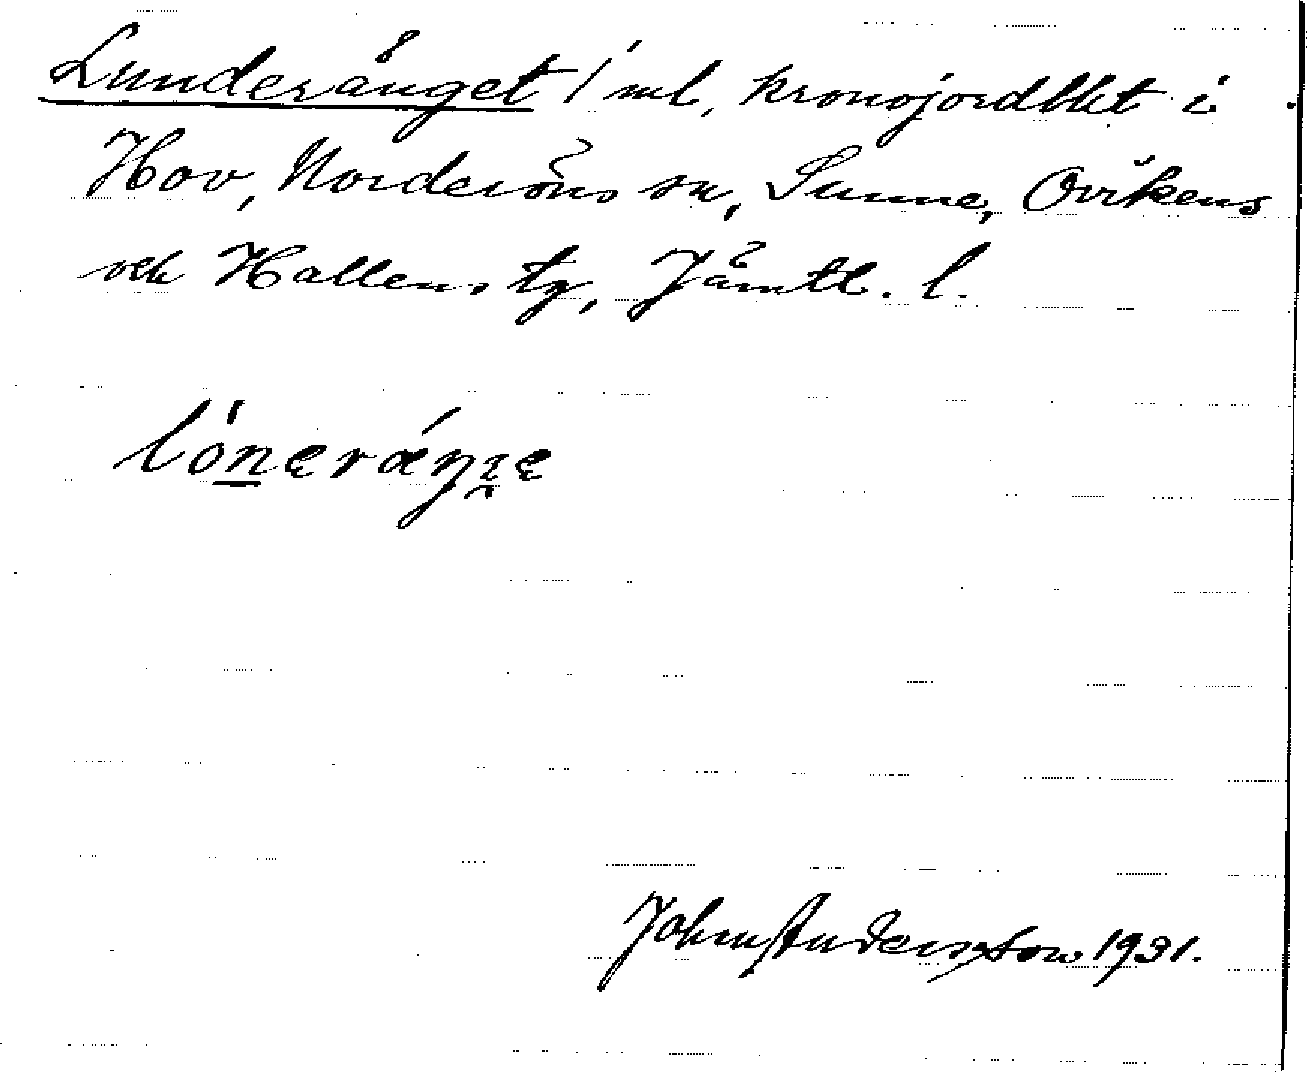 Lunderänget 1 ml, kronojordbkt i
Hov, Norderöns sn, Sunne, Ovikens
och Hallens tg, Jämtl. l.
John Andersson 1931.